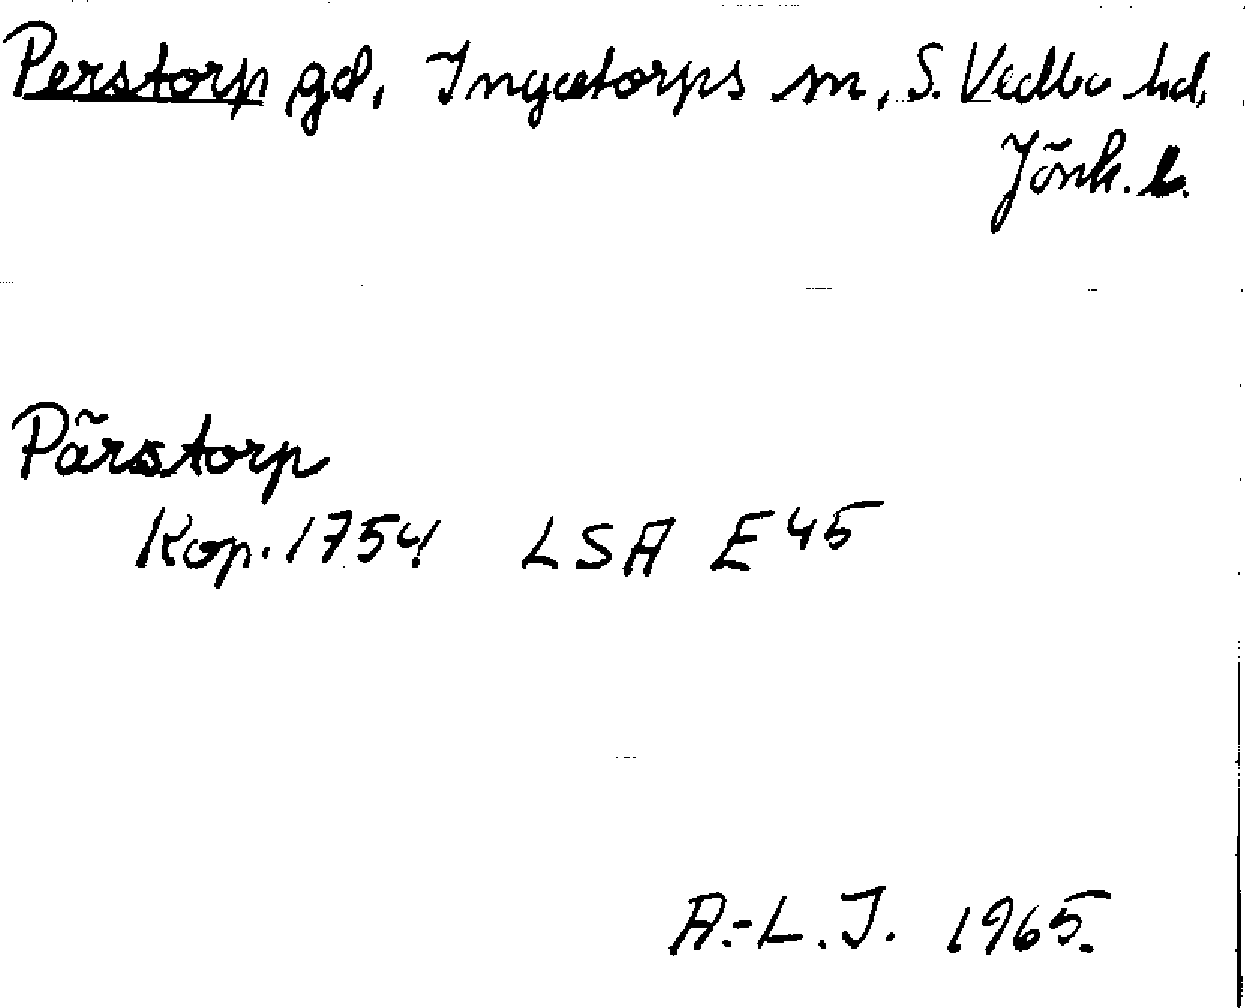 Perstorp gd, Ingatorps sn, S. Vedbo hd,
Jönk. l.
Pärstorp
Kop. 1754 LSA E 45
A.-L.J. 1965.